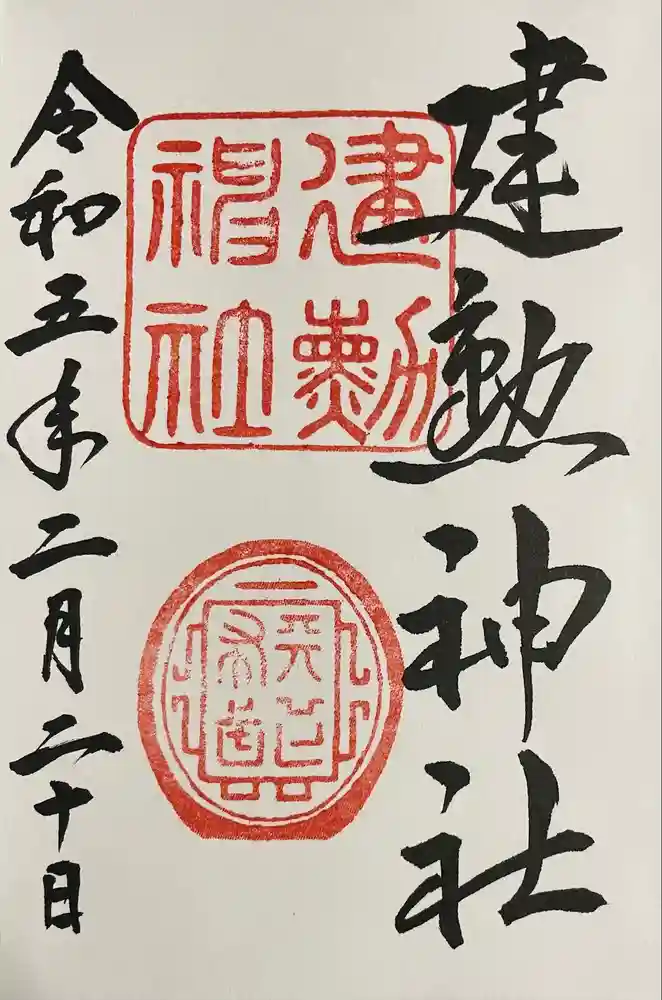 建勲神社
建勲
神社
天下布武
令和五年二月二十日